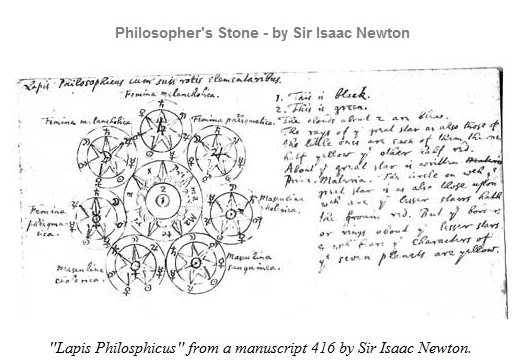 Philosopher's Stone - by Sir Isaac Newton
Lapis Philosophicus cum suis rotis elementaribus.
Femina melancholica.
Femina melancholica
Femina phlegmatica.
Femina
Masculina
Masculina
sanguinea.
Masculina
1. This is black.
2. This is green.
The clouds about 2 are blue.
The rays of yͤ great star as also those of
the little ones are each of them the one
half yellow yͤ other half red.
About yͤ great star is written materia
prima. Materia. The circle on wch yͤ
great star is as also those upon
wch are yͤ lesser stars hath
the ground red. But yͤ borders
or rings about yͤ lesser stars
yͤ characters of
yͤ seven planets are yellow.
"Lapis Philosphicus" from a manuscript 416 by Sir Isaac Newton.